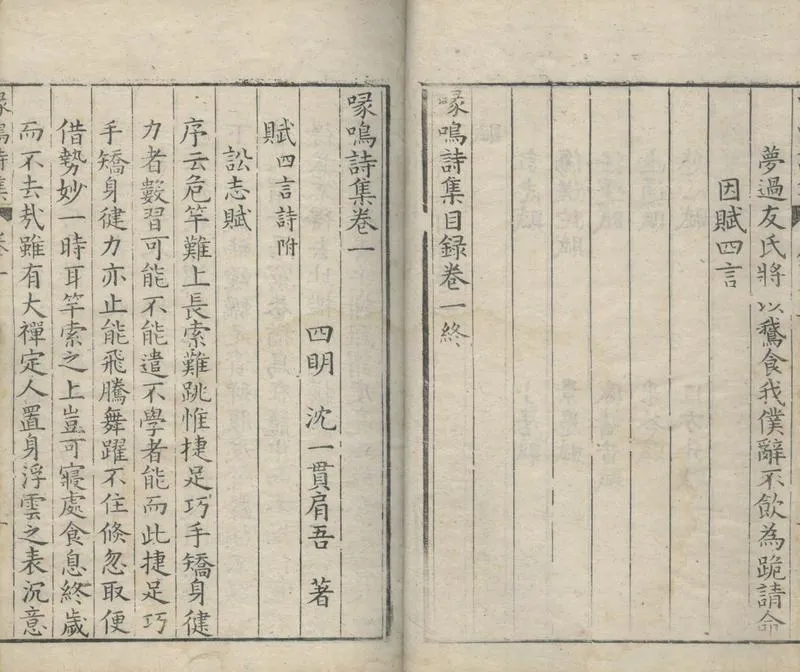 夢過友氏將以鵝食我僕辭不飲為跪請命
因賦四言
喙鳴詩集目録卷一終
喙鳴詩集卷一
四明 沈一貫肩吾 著
賦四言詩附
訟志賦
序云危竿難上長索難跳惟捷足巧手矯身健
力者藪習可能不能遣不學者能而此捷足巧
手矯身健力亦止能飛騰舞躍不住倏忽取便
借勢妙一時耳竿索之上豈可寢處食息終歲
而不去㢤雖有大禪定人置身浮雲之表沉意
鳴詩集 卷一